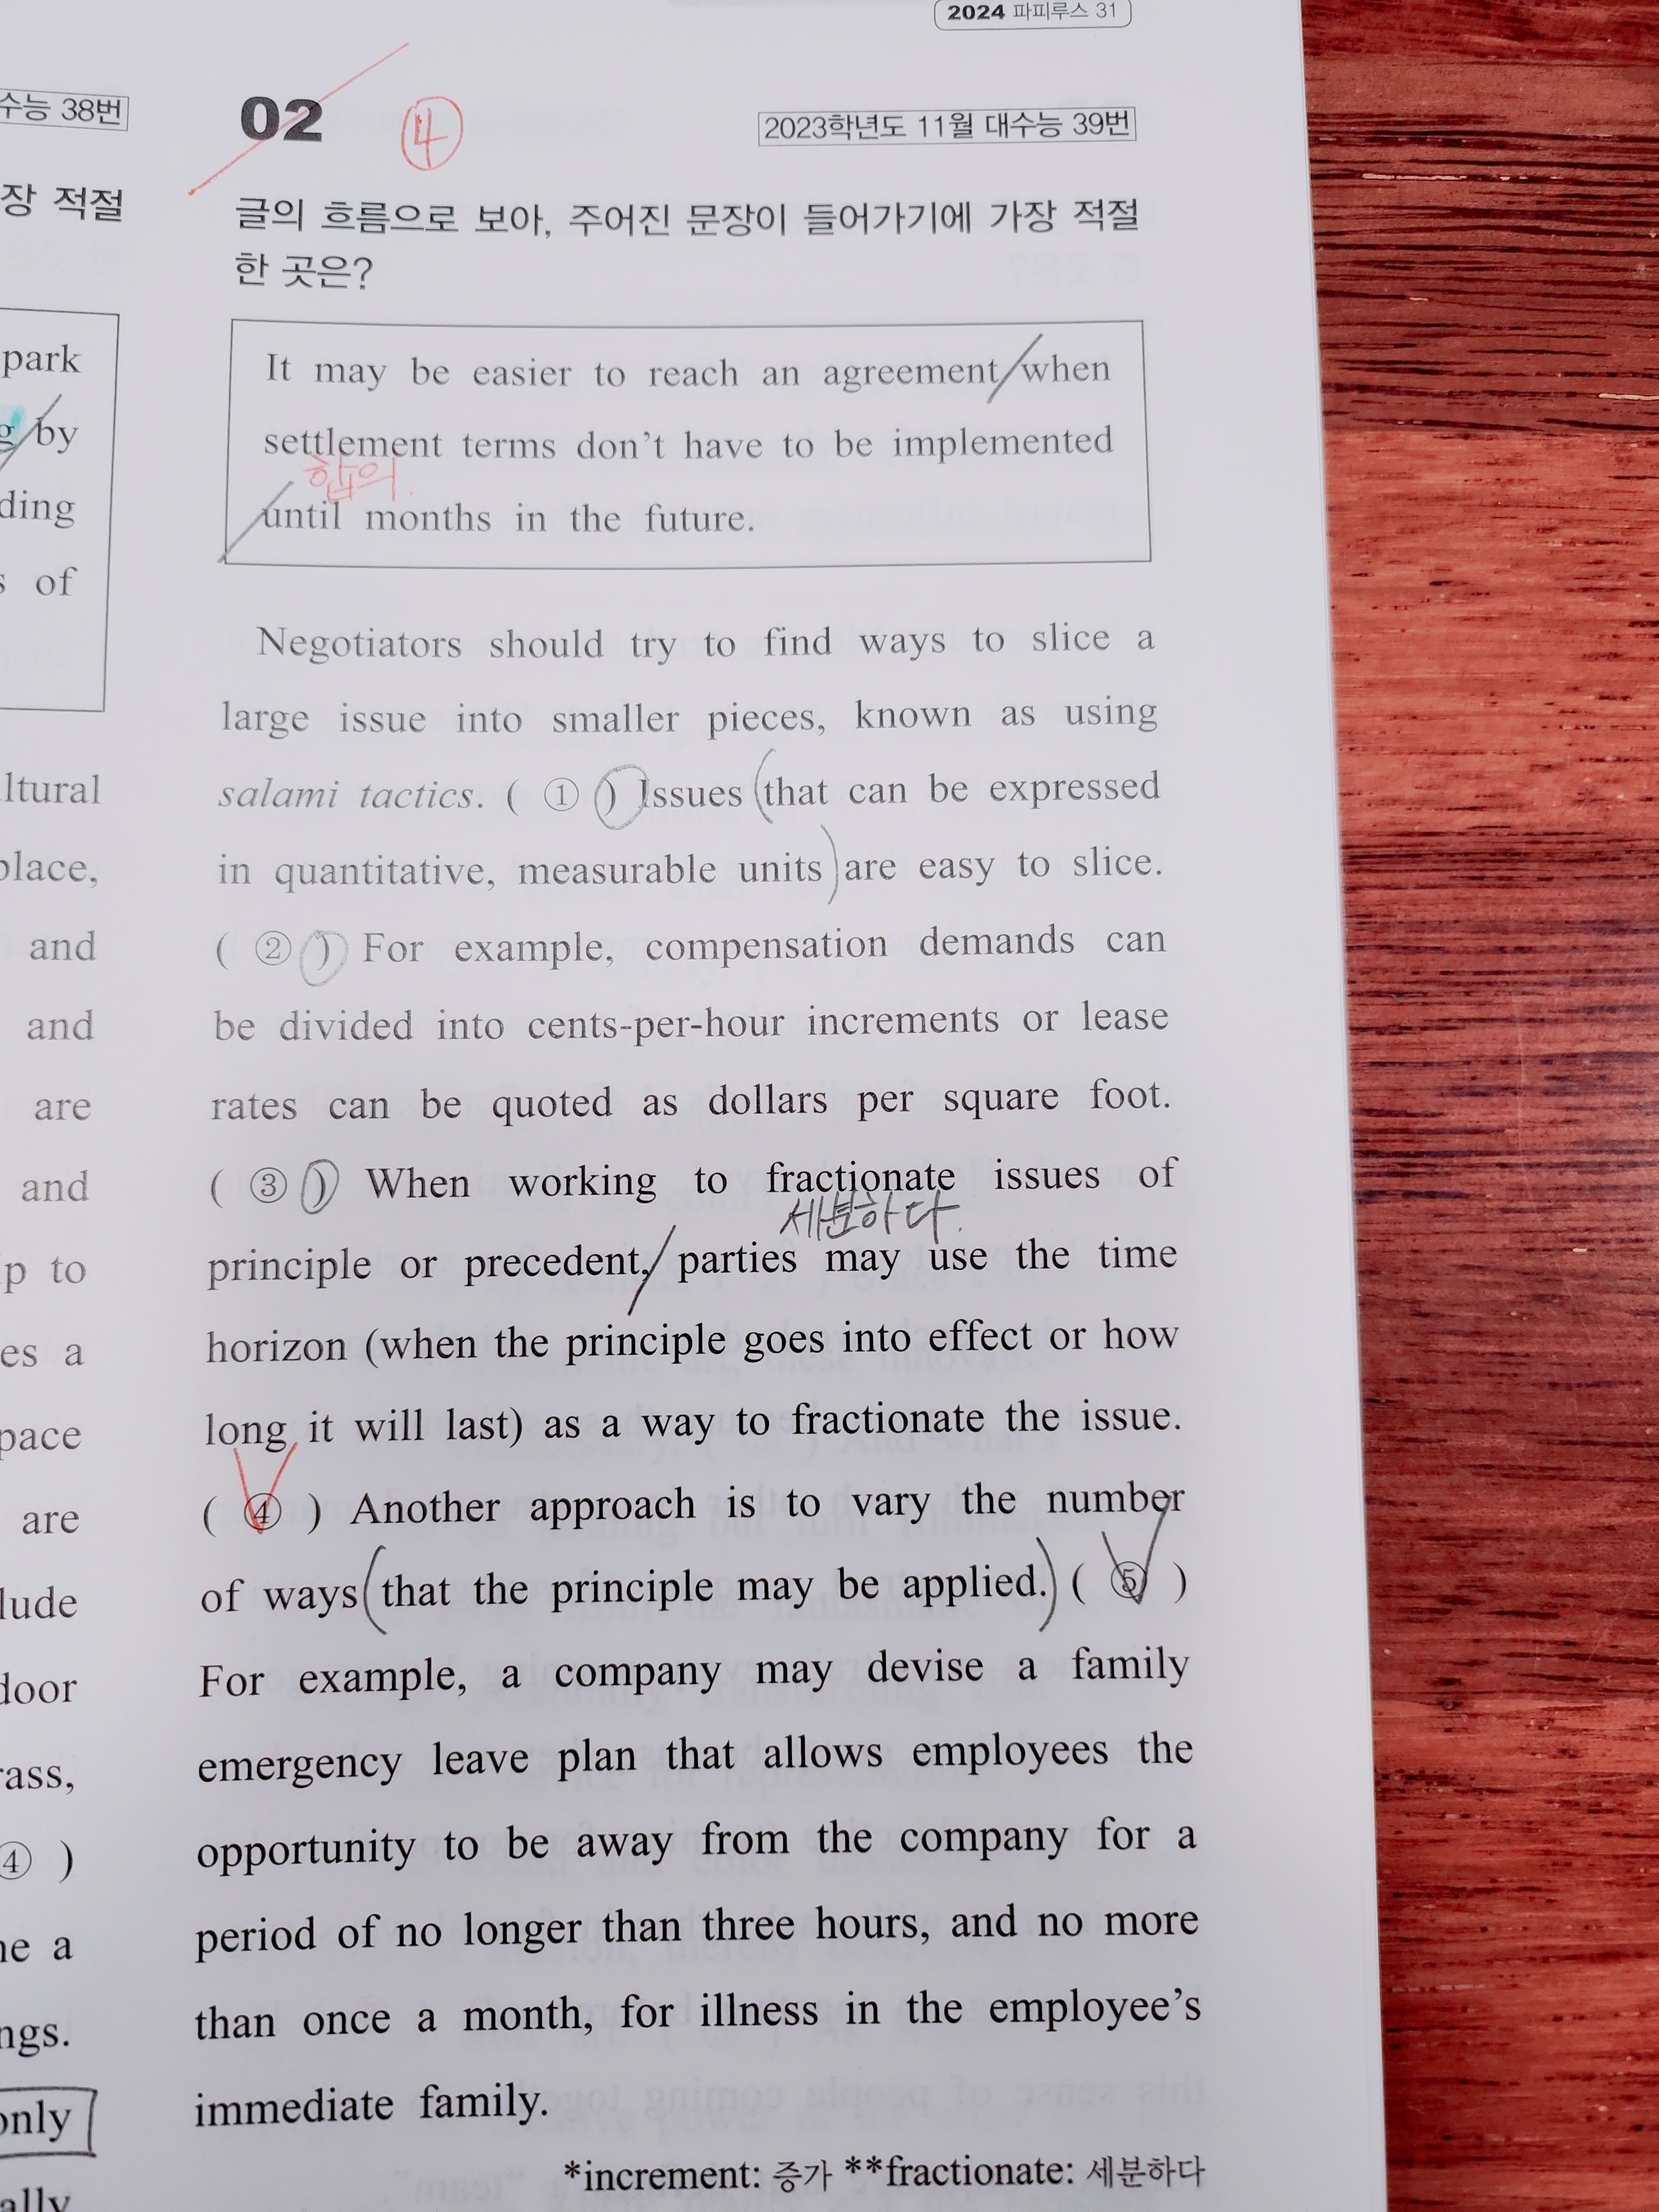 2024 파피루스 31
수능 38번
장 적절
park
by
ding
s of
ltural
place,
and
and
are
and
p to
es a
pace
are
lude
door
rass,
④ )
ne a
ngs.
only
ally
02 ④
2023학년도 11월 대수능 39번
글의 흐름으로 보아, 주어진 문장이 들어가기에 가장 적절
한 곳은?
It may be easier to reach an agreement when
settlement terms don't have to be implemented
합의
until months in the future.
Negotiators should try to find ways to slice a
large issue into smaller pieces, known as using
salami tactics. ( ① ) Issues that can be expressed
in quantitative, measurable units are easy to slice.
( ② ) For example, compensation demands can
be divided into cents-per-hour increments or lease
rates can be quoted as dollars per square foot.
( ③ ) When working to fractionate issues of
세분하다.
principle or precedent, parties may use the time
horizon (when the principle goes into effect or how
long it will last) as a way to fractionate the issue.
( ④ ) Another approach is to vary the number
of ways that the principle may be applied. ( ⑤ )
For example, a company may devise a family
emergency leave plan that allows employees the
opportunity to be away from the company for a
period of no longer than three hours, and no more
than once a month, for illness in the employee's
immediate family.
*increment: 증가 **fractionate: 세분하다